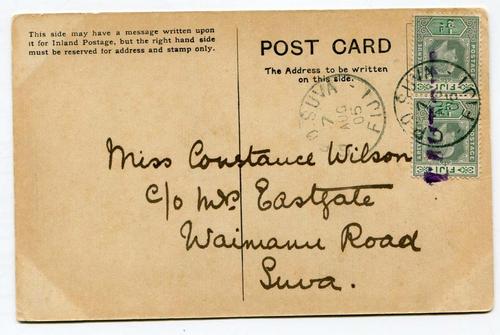 This side may have a message written upon
it for Inland Postage, but the right hand side
must be reserved for address and stamp only.
POST CARD
The Address to be written
on this side.
G.P.O SUVA FIJI
7
AUG
05
G.P.O SUVA FIJI
7
POSTAGE
FIJI
POSTAGE
FIJI
Miss Constance Wilson
c/o Mrs Eastgate
Waimanu Road
Suva.